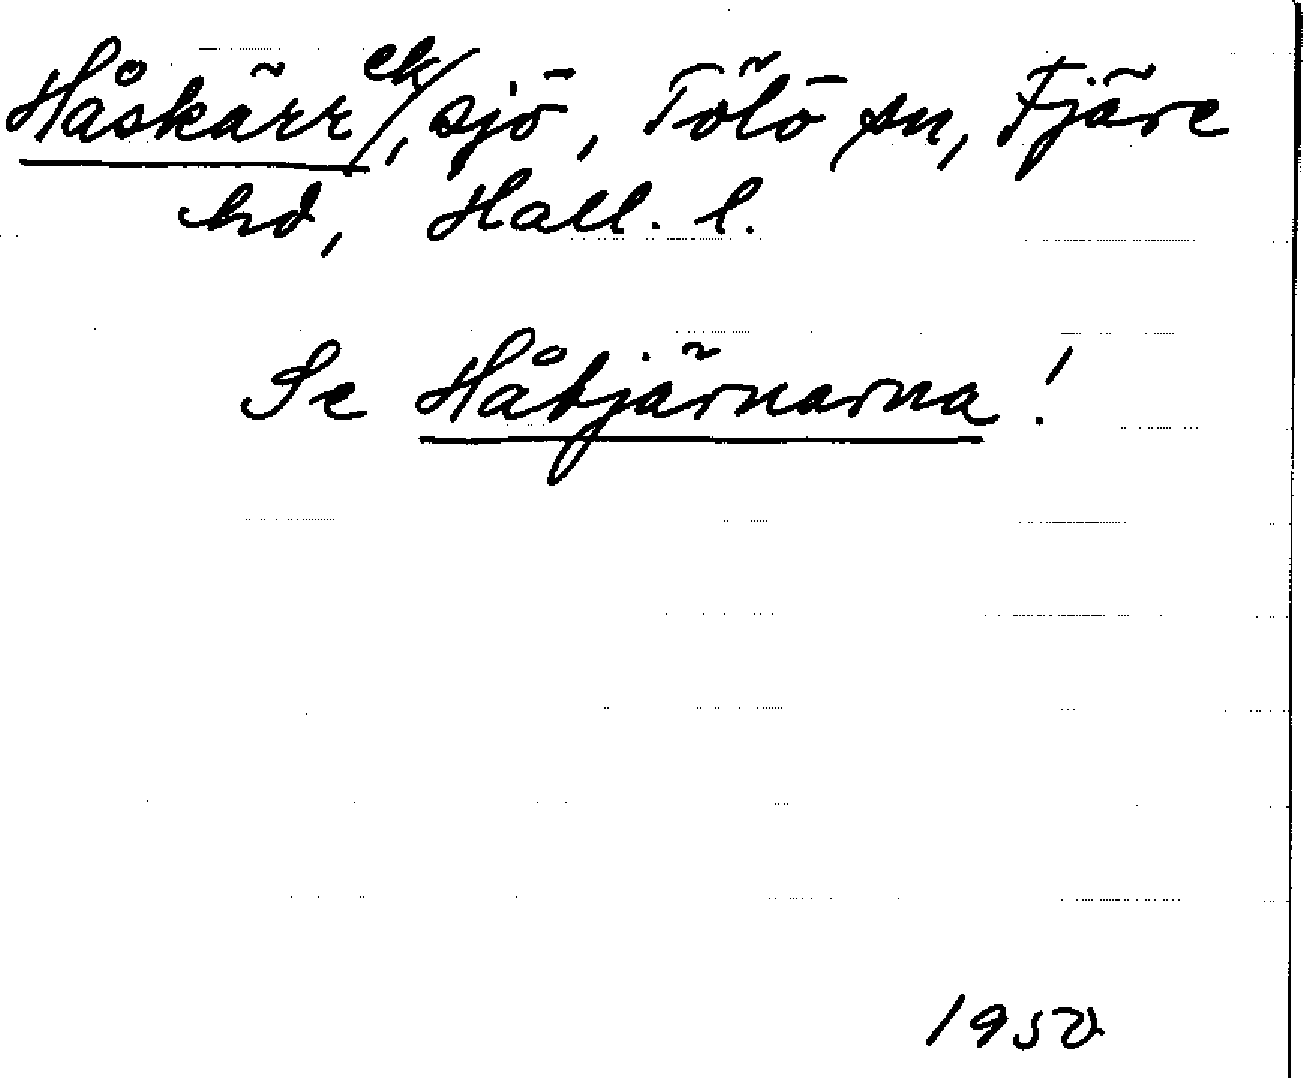 Håskärr ek/, sjö, Tölö sn, Fjäre
hd, Hall. l.
Se Håtjärnarna!
1950